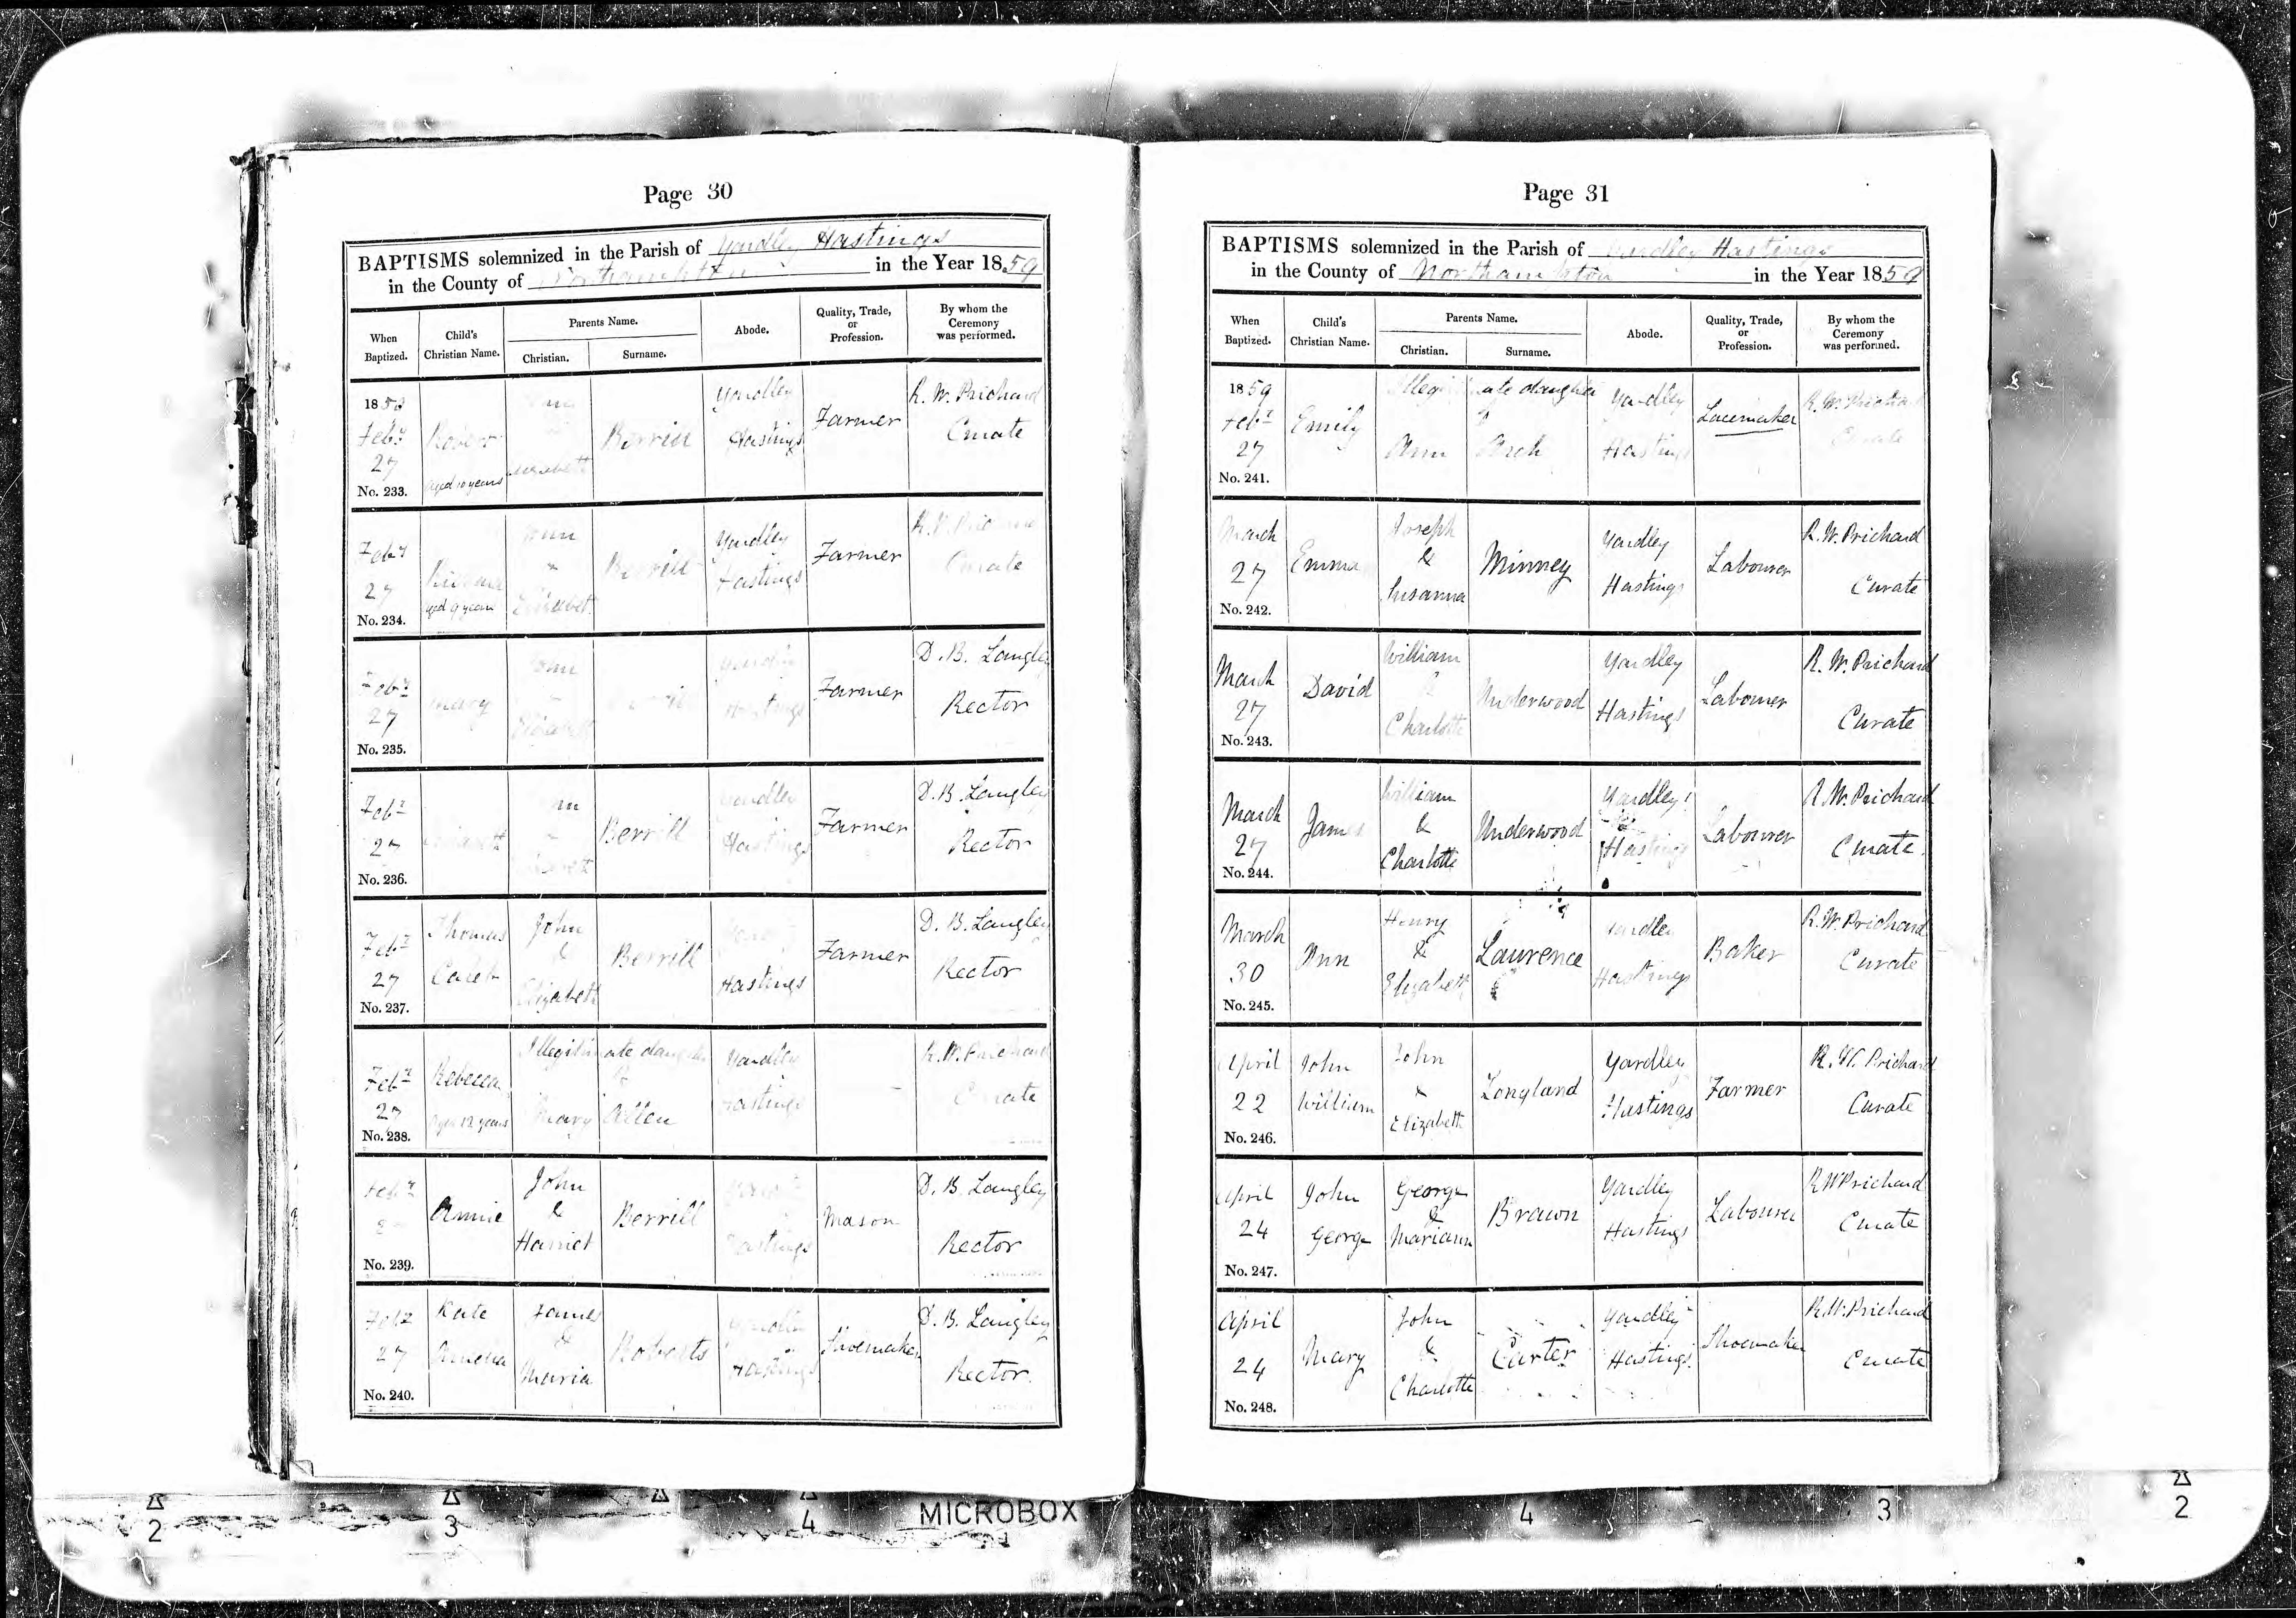 Page 30
BAPTISMS solemnized in the Parish of Yardley Hastings
in the County of Northampton in the Year 1859
When Baptized.
Child's Christian Name.
Parents Name.
Christian.
Surname.
Abode.
Quality, Trade, or Profession.
By whom the Ceremony was performed.
1859 Feby 27 No. 233.
Robert aged 10 years
Berrill
Yardley Hastings
Farmer
R. W. Prichard Curate
Feby 27 No. 234.
aged 9 years
Elizabeth
Berrill
Yardley Hastings
Farmer
R. W. Prichard Curate
Feby 27 No. 235.
Mary
John
Elizabeth
Yardley Hastings
Farmer
D. B. Langley Rector
Feby 27 No. 236.
Berrill
Yardley Hastings
Farmer
D. B. Langley Rector
Feby 27 No. 237.
Thomas Caleb
John & Elizabeth
Berrill
Hastings
Farmer
D. B. Langley Rector
Feby 27 No. 238.
Rebecca Aged 12 years
Illegitimate daughter
Mary Allen
Yardley Hastings
R. W. Prichard Curate
Feby No. 239.
Annie
John & Harriet
Berrill
Hastings
Mason
D. B. Langley Rector
Feby 27 No. 240.
Kate Amelia
James & Maria
Roberts
Yardley Hastings
Shoemaker
D. B. Langley Rector.
Page 31
BAPTISMS solemnized in the Parish of Yardley Hastings
in the County of Northampton in the Year 1859
When Baptized.
Child's Christian Name.
Parents Name.
Christian.
Surname.
Abode.
Quality, Trade, or Profession.
By whom the Ceremony was performed.
1859 Feby 27 No. 241.
Emily
Illegitimate daughter
Ann Arch
Yardley Hastings
Lacemaker
R. W. Prichard Curate
March 27 No. 242.
Emma
Joseph & Susanna
Minney
Yardley Hastings
Labourer
R. W. Prichard Curate
March 27 No. 243.
David
William & Charlotte
Underwood
Yardley Hastings
Labourer
R. W. Prichard Curate
March 27 No. 244.
James
William & Charlotte
Underwood
Yardley Hastings
Labourer
R. W. Prichard Curate.
March 30 No. 245.
Ann
Henry & Elizabeth
Laurence
Yardley Hastings
Baker
R. W. Prichard Curate
April 22 No. 246.
John William
John & Elizabeth
Longland
Yardley Hastings
Farmer
R. W. Prichard Curate
April 24 No. 247.
John George
George & Mariann
Brawn
Yardley Hastings
Labourer
R W Prichard Curate
April 24 No. 248.
Mary
John & Charlotte
Carter
Yardley Hastings.
Shoemaker
R. W. Prichard Curate
2 3 4 MICROBOX 4 3 2